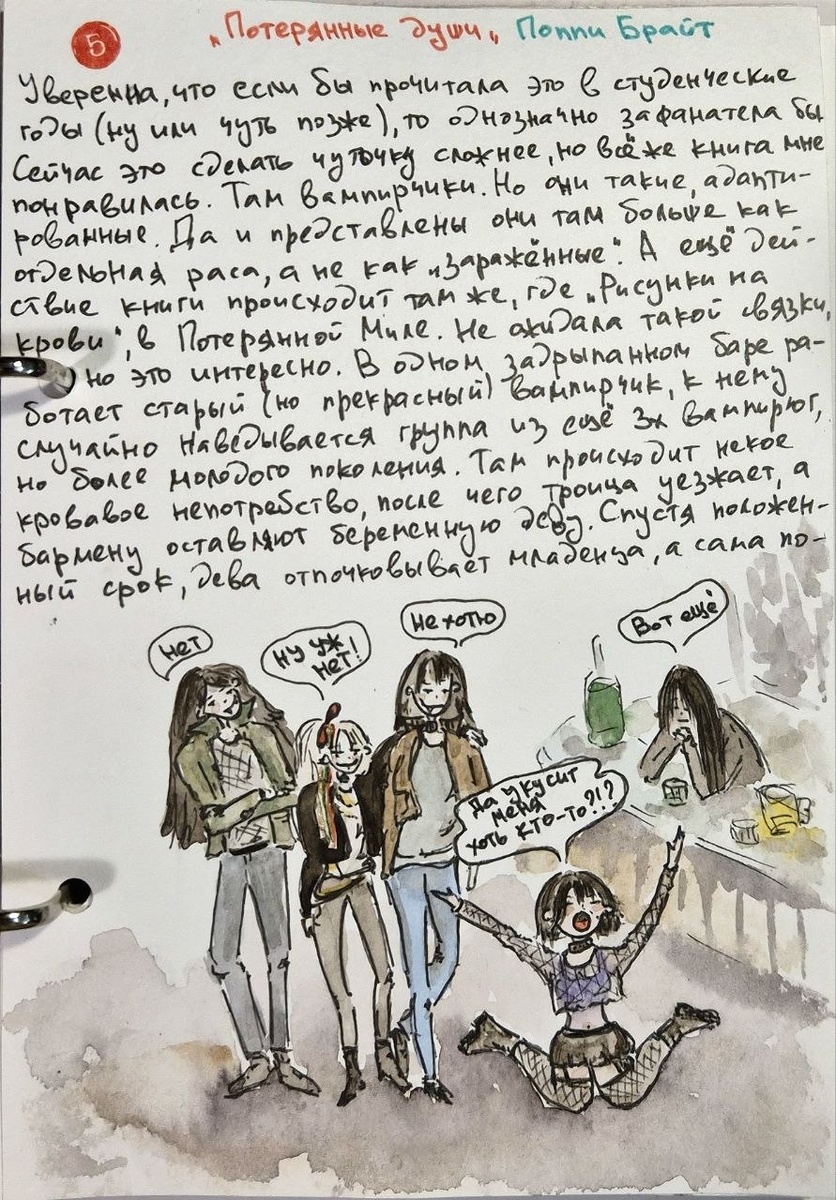 5
„Потерянные души„ Поппи Брайт
Уверенна, что если бы прочитала это в студенческие
годы (ну или чуть позже), то однозначно зафанатела бы
Сейчас это сделать чуточку сложнее, но всё же книга мне
понравилась. Там вампирчики. Но они такие, адапти-
рованные. Да и представлены они там больше как
отдельная раса, а не как „заражённые". А ещё дей-
ствие книги происходит там же, где „Рисунки на
крови", в Потерянной Миле. Не ожидала такой связки,
но это интересно. В одном, задрыпанном баре ра-
ботает старый (но прекрасный) вампирчик, к нему
случайно наведывается группа из ещё 3х вампирюг,
но более молодого поколения. Там происходит некое
кровавое непотребство, после чего троица уезжает, а
бармену оставляют беременную деву. Спустя положен-
ный срок, дева отпочковывает младенца, а сама по-
Нет
Ну уж
нет!
Не хотю
Вот ещё
Да укусит
меня
хоть кто-то?!?